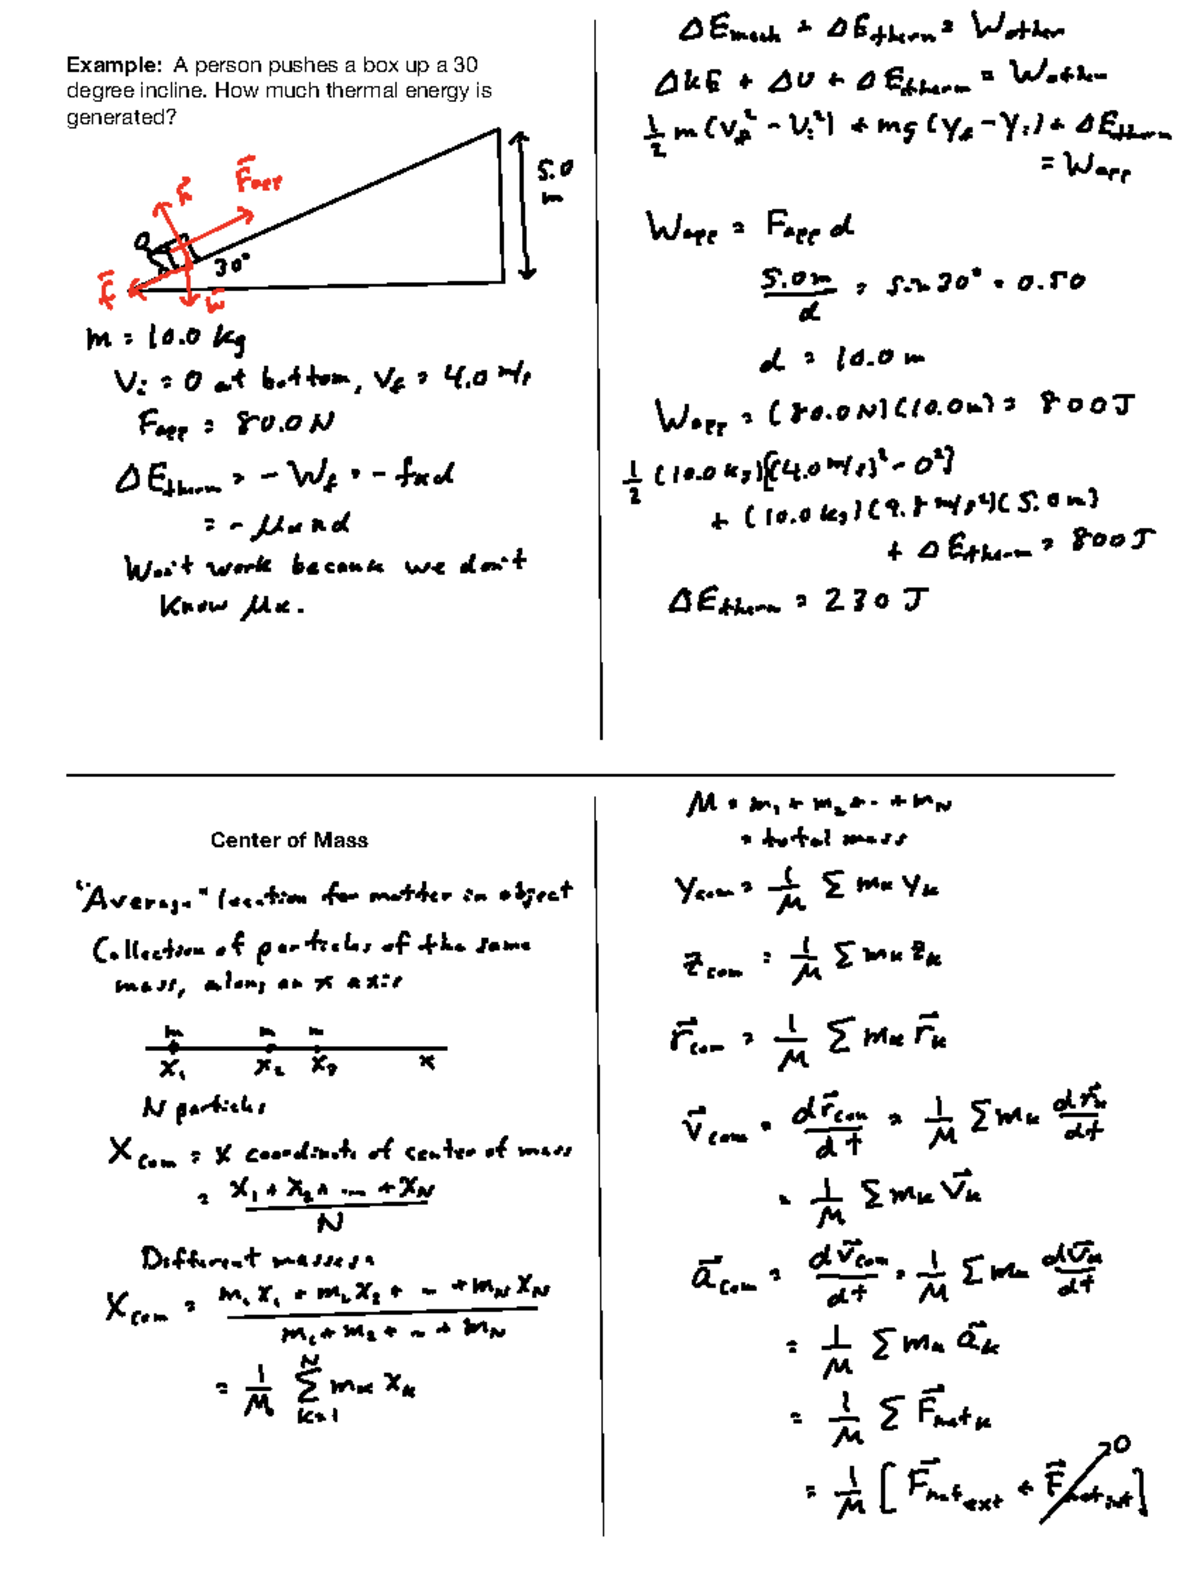 Example: A person pushes a box up a 30
degree incline. How much thermal energy is
generated?
n⃗
F⃗app
5.0
m
30°
f⃗
w⃗
m = 10.0 kg
Vi = 0 at bottom, Vf = 4.0 m/s
Fapp = 80.0 N
ΔEtherm = -Wf = -fkd
= -μk n d
Won't work because we don't
know μk.
ΔEmech + ΔEtherm = Wother
ΔKE + ΔU + ΔEtherm = Wother
1/2 m(Vf² - Vi²) + mg(yf - yi) + ΔEtherm
= Wapp
Wapp = Fapp d
5.0m/d = sin 30° = 0.50
d = 10.0 m
Wapp = (80.0N)(10.0m) = 800J
1/2 (10.0 kg)[(4.0 m/s)² - 0²]
+ (10.0 kg)(9.8 m/s²)(5.0m)
+ ΔEtherm = 800J
ΔEtherm = 230 J
Center of Mass
"Average" location for matter in object
Collection of particles of the same
mass, along an x axis
m m m
x1 x2 x3 x
N particles
Xcom = x coordinate of center of mass
= (x1 + x2 + ... + xN)/N
Different masses:
Xcom = (m1x1 + m2x2 + ... + mNxN)/(m1 + m2 + ... + mN)
= 1/M Σ(k=1 to N) mk xk
M = m1 + m2 + ... + mN
= total mass
ycom = 1/M Σ mk yk
zcom = 1/M Σ mk zk
r⃗com = 1/M Σ mk r⃗k
v⃗com = dr⃗com/dt = 1/M Σ mk dr⃗k/dt
= 1/M Σ mk v⃗k
a⃗com = dv⃗com/dt = 1/M Σ mk dv⃗k/dt
= 1/M Σ mk a⃗k
= 1/M Σ F⃗net k
= 1/M [F⃗net ext + F⃗net int] →0